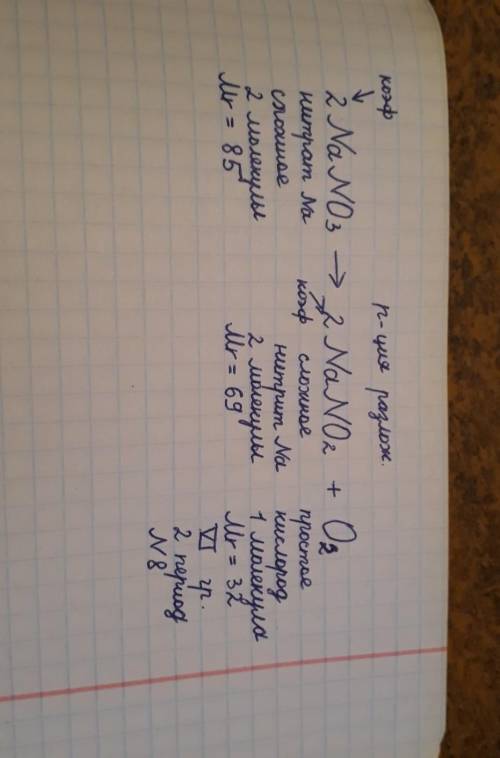 р-ция разлож.
коэф
2 NaNO₃ → 2 NaNO₂ + O₂
нитрат Na
сложное
2 молекулы
Mr = 85
коэф сложное
нитрит Na
2 молекулы
Mr = 69
простое
кислород
1 молекула
Mr = 32
VI гр.
2 период
N 8